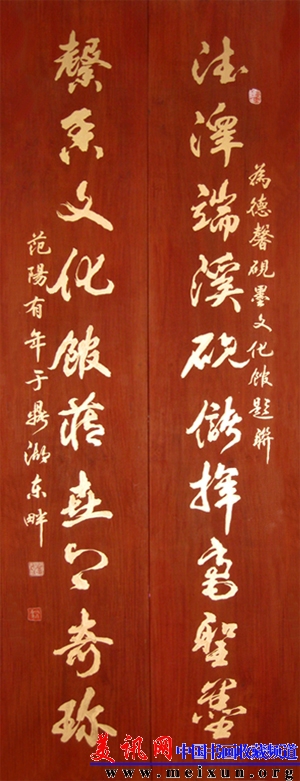 德澤端溪硯揮書聖墨
為德馨硯墨文化館題聯
馨香文化館藏奇珍
范陽有年于鼎湖东畔
美讯网 中国书画收藏频道
www.meixun.org